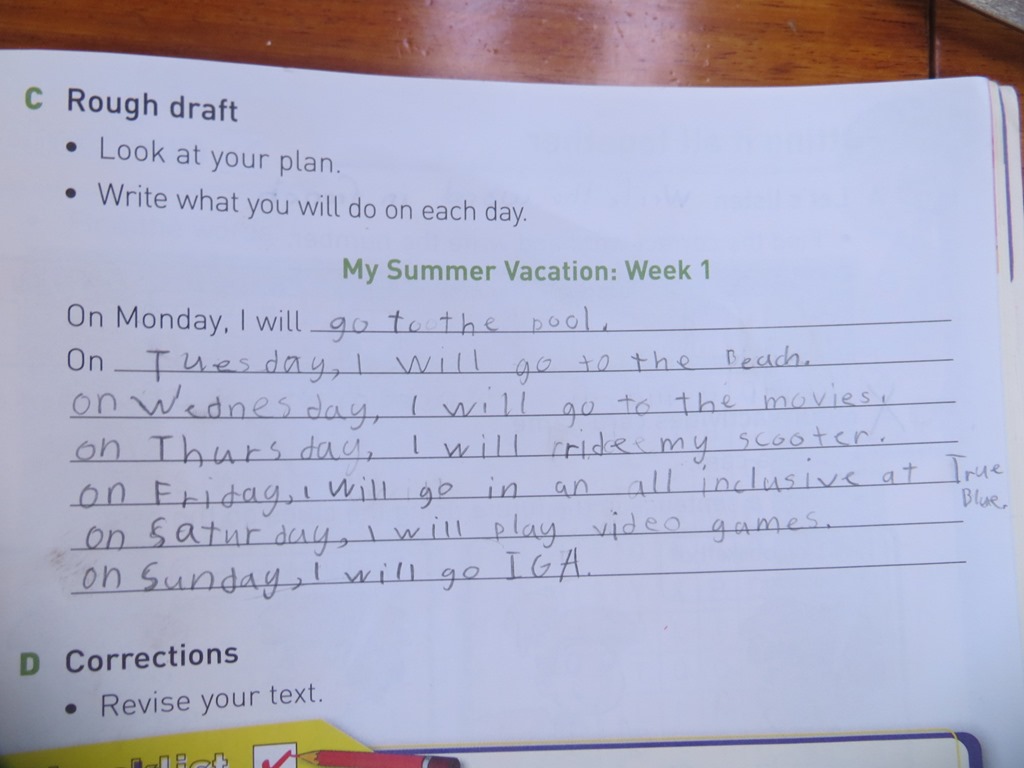 C Rough draft
• Look at your plan.
• Write what you will do on each day.
My Summer Vacation: Week 1
On Monday, I will go to the pool.
On Tuesday, I will go to the Beach.
on Wednesday, I will go to the movies.
on Thursday, I will ride my scooter.
on Friday, I will go in an all inclusive at True
Blue.
on Saturday, I will play video games.
on Sunday, I will go IGA.
D Corrections
• Revise your text.